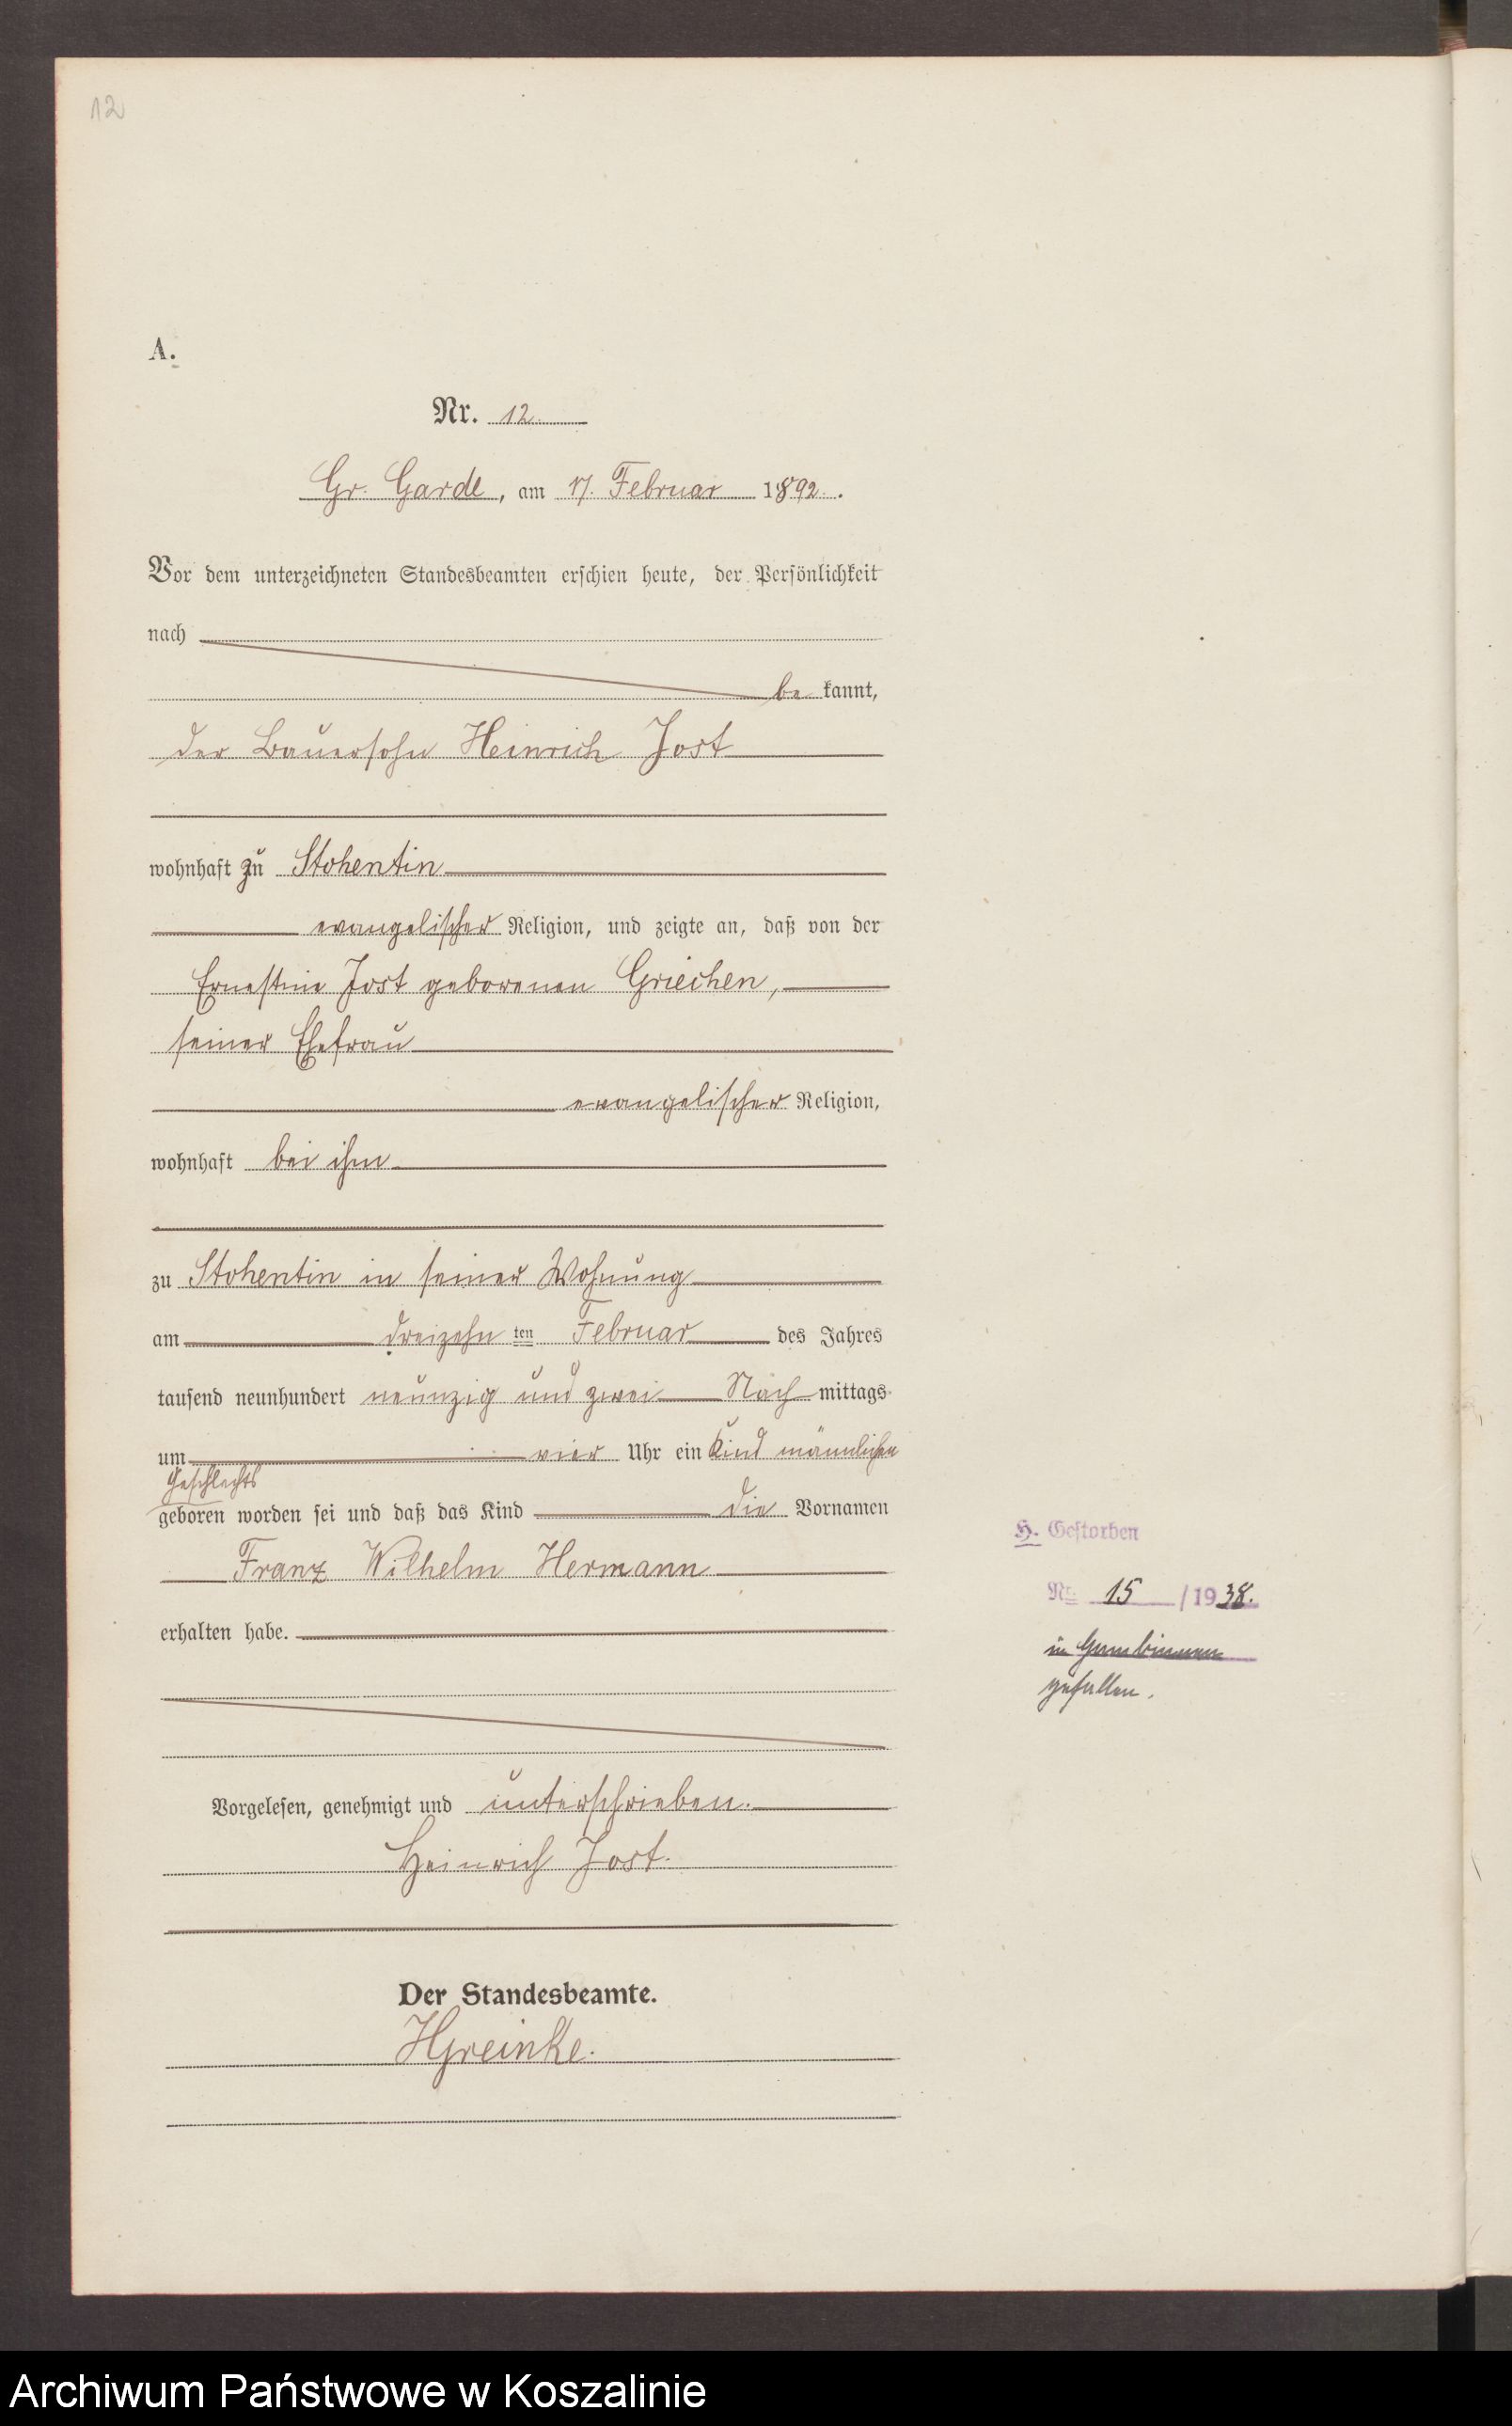 12
A.
Nr. 12.
Gr. Garde, am 17. Februar 1892.
Vor dem unterzeichneten Standesbeamten erschien heute, der Persönlichkeit
nach
be kannt,
der Bauersohn Heinrich Jost
wohnhaft zu Stohentin
evangelischer Religion, und zeigte an, daß von der
Ernestine Jost geborenen Griechen,
seiner Ehefrau
evangelischer Religion,
wohnhaft bei ihm
zu Stohentin in seiner Wohnung
am dreizehn ten Februar des Jahres
tausend neunhundert neunzig und zwei Nach mittags
um vier Uhr ein Kind männlichen
Geschlechts
geboren worden sei und daß das Kind die Vornamen
Franz Wilhelm Hermann
erhalten habe.
H. Gestorben
Nr. 15 / 1938.
in Gumbinnen
gefallen.
Vorgelesen, genehmigt und unterschrieben.
Heinrich Jost.
Der Standesbeamte.
Archiwum Państwowe w Koszalinie